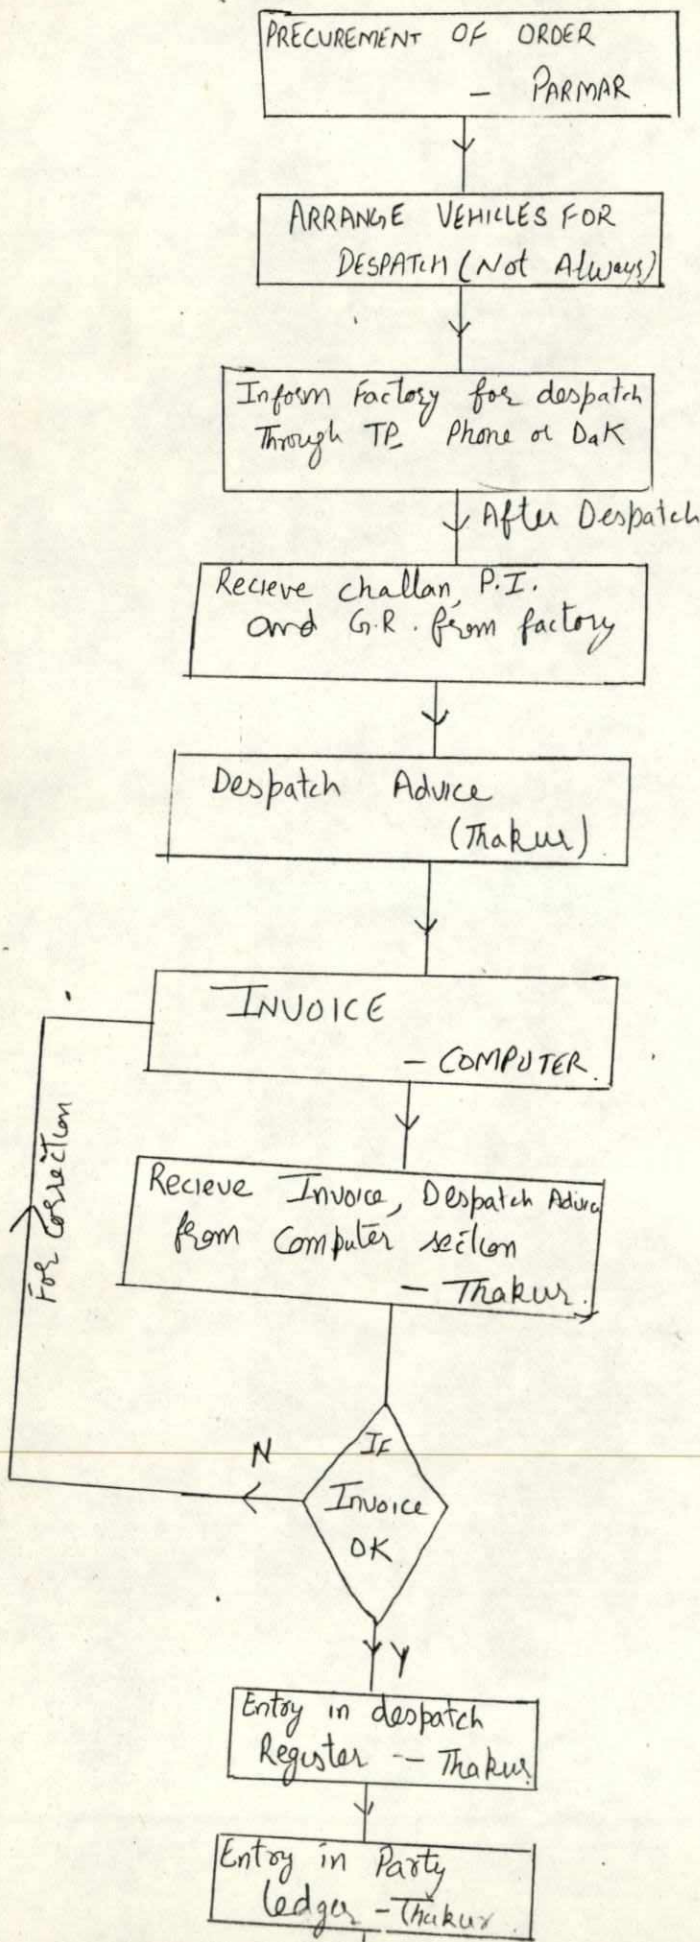 PRECUREMENT OF ORDER
- PARMAR
ARRANGE VEHICLES FOR
DESPATCH (Not Always)
Inform Factory for despatch
Through TP Phone or DaK
After Despatch
Recieve challan, P.I.
and G.R. from factory
Despatch Advice
(Thakur)
INVOICE
- COMPUTER.
For Correction
Recieve Invoice, Despatch Advice
from Computer section
- Thakur.
If
Invoice
OK
N
Y
Entry in despatch
Register - Thakur
Entry in Party
ledger - Thakur